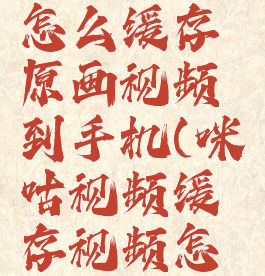 怎么缓存
原画视频
到手机(咪
咕视频缓
存视频怎